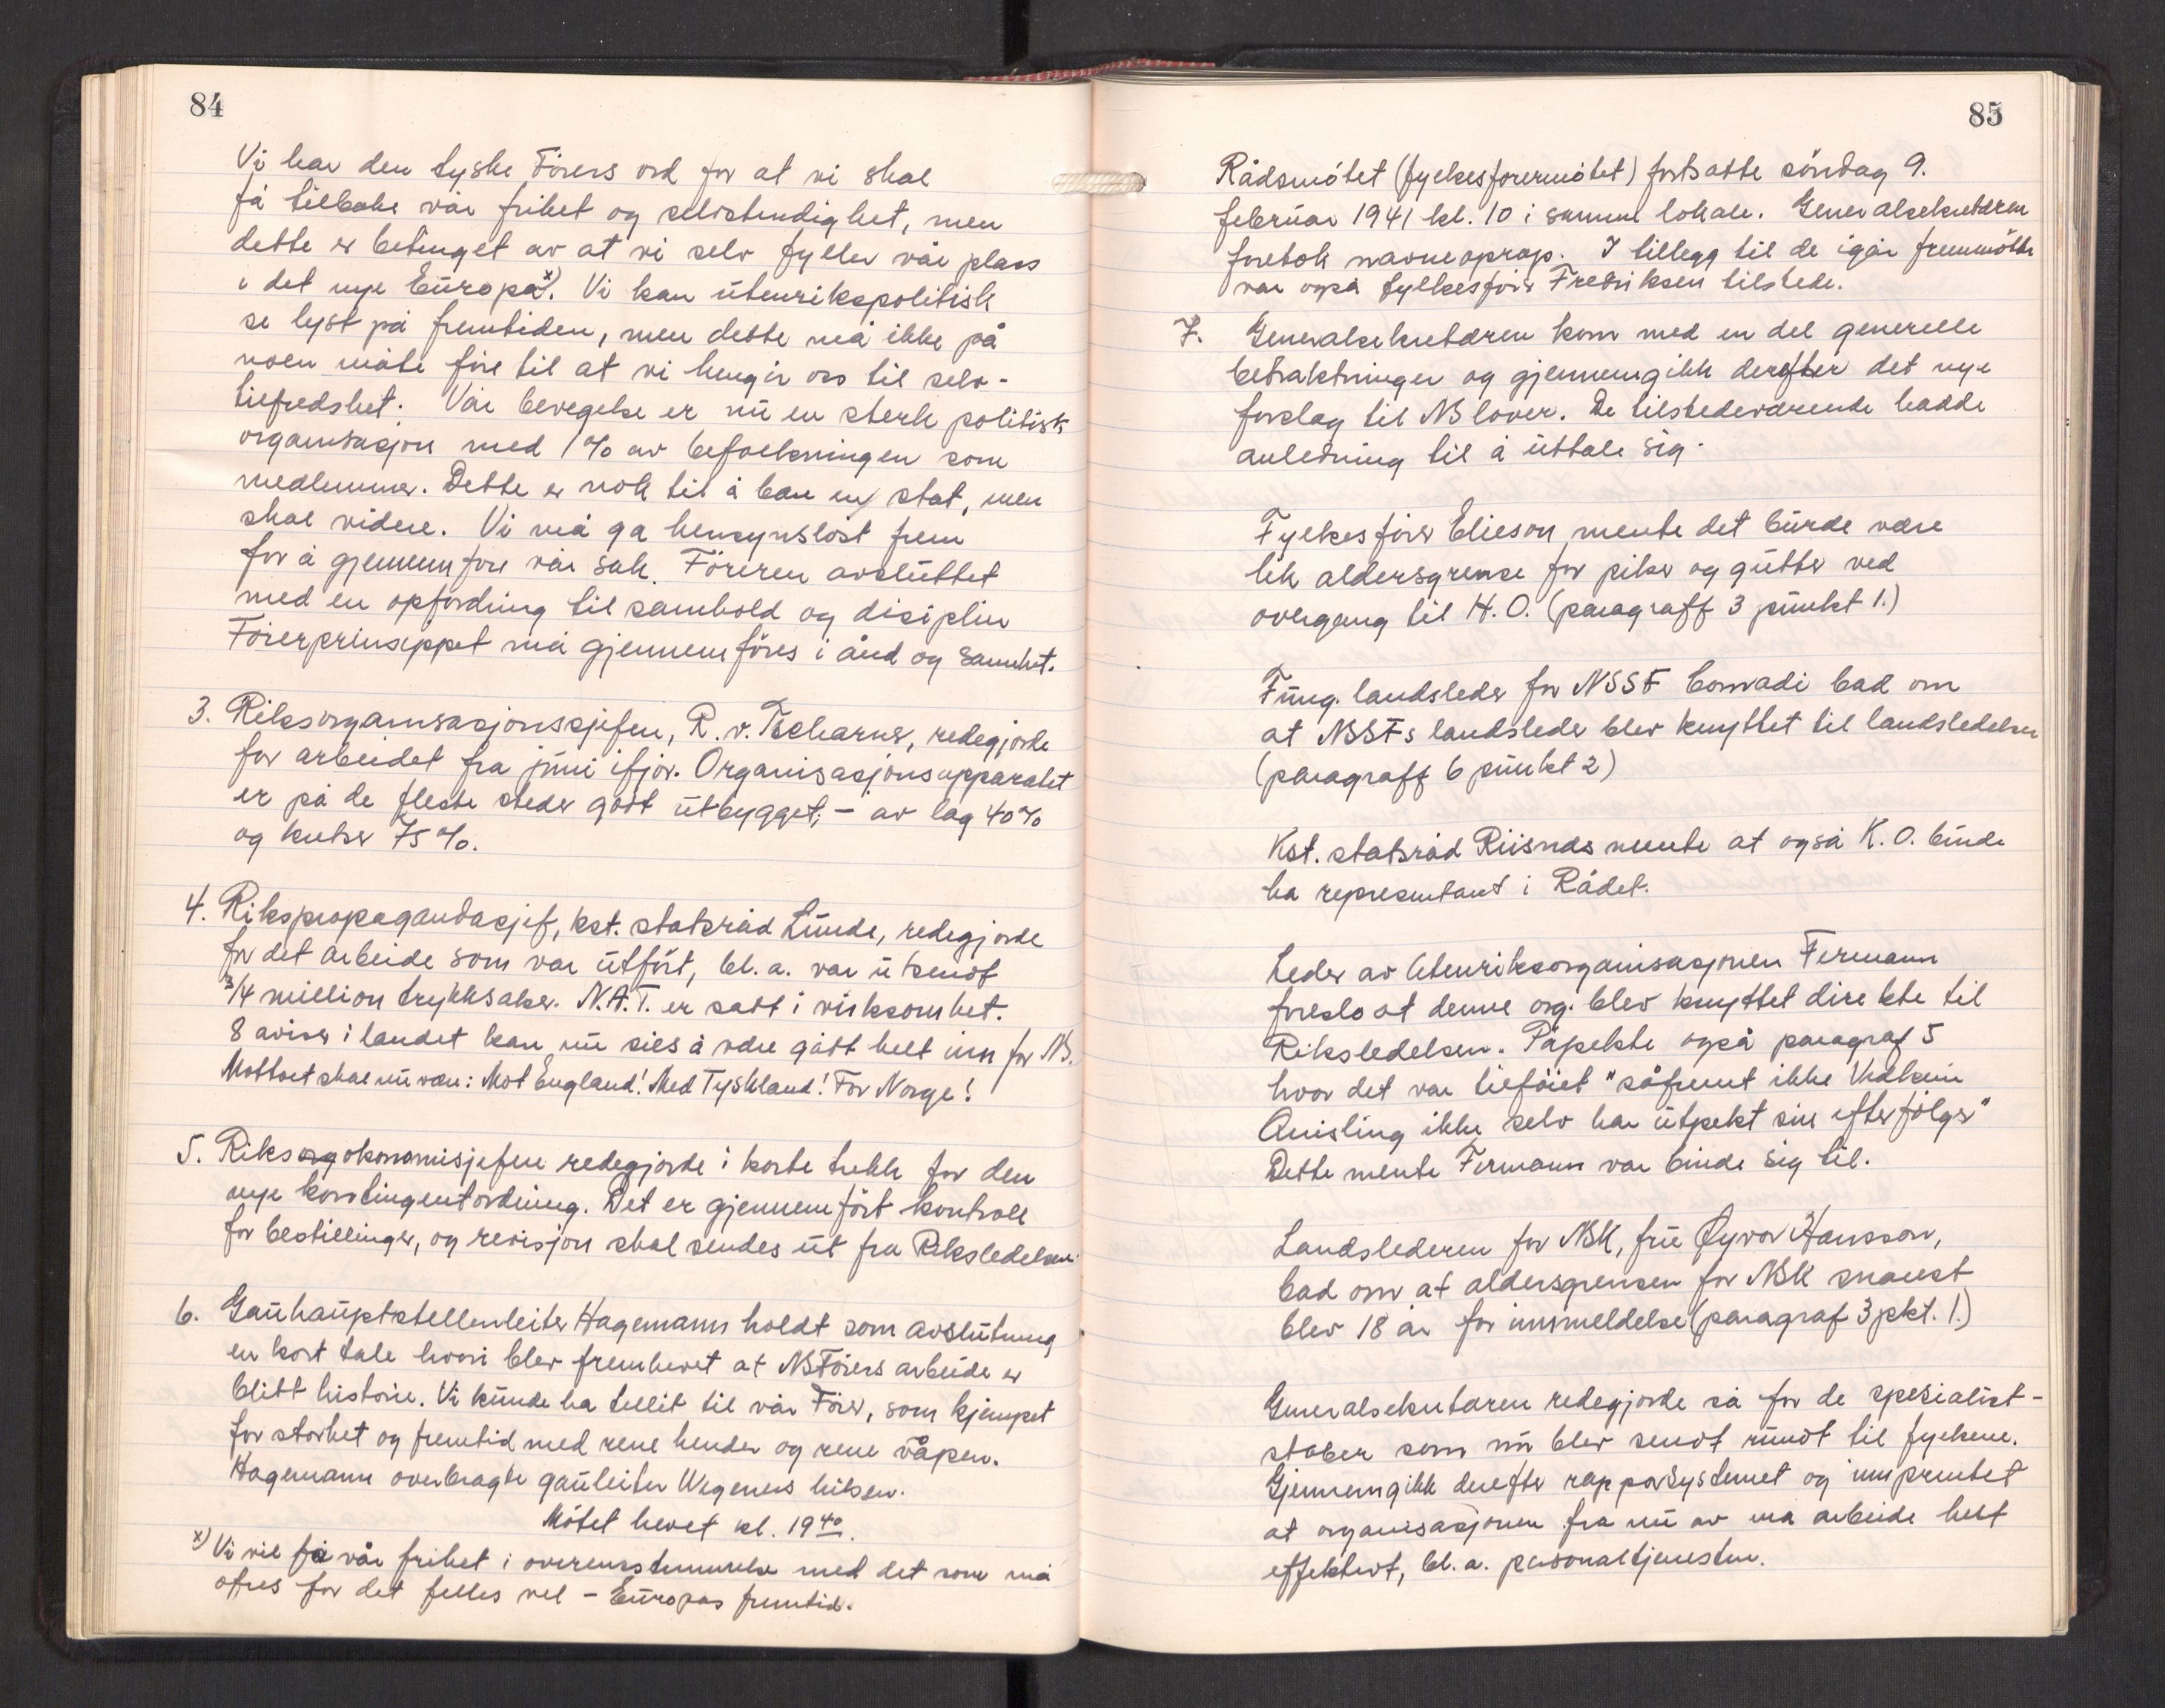 84
Vi har den tyske Förers ord for at vi skal
få tilbake vår frihet og selvstendighet, men
dette er betinget av at vi selv fyller vår plass
i det nye Europa x). Vi kan utenrikspolitisk
se lyst på fremtiden, men dette må ikke på
noen måte före til at vi hengir oss til selv-
tilfredshet. Vår bevegelse er nu en sterk politisk
organisasjon med 1% av befolkningen som
medlemmer. Dette er nok til å bære en stat, men
skal videre. Vi må gå hensynslöst frem
for å gjennemföre vår sak. Föreren avsluttet
med en opfordring til samhold og disiplin
Förerprinsippet må gjennemföres i ånd og sannhet.
3. Riksorganisasjonssjefen, R. v. Tscharner, redegjorde
for arbeidet fra juni ifjor. Organisasjonsapparatet
er på de fleste steder godt utbygget; – av lag 40%
og kretser 75%.
4. Rikspropagandasjef, kst. statsråd Lunde, redegjorde
for det arbeide som var utfört, bl. a. var utsendt
3/4 million trykksaker. N.A.T. er satt i virksomhet.
8 aviser i landet kan nu sies å være gått helt inn for NS.
Mottoet skal nu være: Mot England! Med Tyskland! For Norge!
5. Riksorgokonomisjefen redegjorde i korte trekk for den
nye kontingentordning. Det er gjennemfört kontroll
for bestillinger, og revisjon skal sendes ut fra Riksledelsen.
6. Gauhauptstellenleiter Hagemann holdt som avslutning
en kort tale hvori blev fremhevet at NSFörers arbeide er
blitt historie. Vi kunde ha tellit til vår Förer, som kjempet
for storhet og fremtid med rene hender og rene våpen.
Hagemann overbragte gauleiter Wegeners hilsen.
Mötet hevet kl. 19 40.
x) Vi vil få vår frihet i overensstemmelse med det som må
ofres for det felles vel – Europas fremtid.
85
Rådsmötet (fylkesförermötet) fortsatte söndag 9.
februar 1941 kl. 10 i samme lokale. Generalsekretæren
foretok navneoprop. I tillegg til de igår fremmötte
var også fylkesförer Fredriksen tilstede.
7. Generalsekretæren kom med en del generelle
betraktninger og gjennemgikk derefter det nye
forslag til NS lover. De tilstedeværende hadde
anledning til å uttale sig.
Fylkesförer Elieson mente det burde være
lik aldersgrense for piker og gutter ved
overgang til H. O. (paragraff 3 punkt 1.)
Fung. landsleder for NSSF Conradi bad om
at NSSFs landsleder blev knyttet til landsledelsen
(paragraff 6 punkt 2)
Kst. statsråd Riisnæs mente at også K. O. burde
ha representant i Rådet.
Leder av Utenriksorganisasjonen Fermann
foreslo at denne org. blev knyttet direkte til
Riksledelsen. Påpekte også paragraf 5
hvor det var tilföiet "såfremt ikke Vidkun
Quisling ikke selv har utpekt sin efterfölger"
Dette mente Fermann var binde sig til.
Landslederen for NSK, fru Øyvor Hansson,
bad om at aldersgrensen for NSK snarest
blev 18 år for innmeldelse (paragraf 3 pkt. 1.)
Generalsekretæren redegjorde så for de spesialist-
staber som nu blev sendt rundt til fylkene.
Gjennemgikk derefter rapportsystemet og innprentet
at organisasjonen fra nu av må arbeide helt
effektivt, bl. a. personaltjenesten.